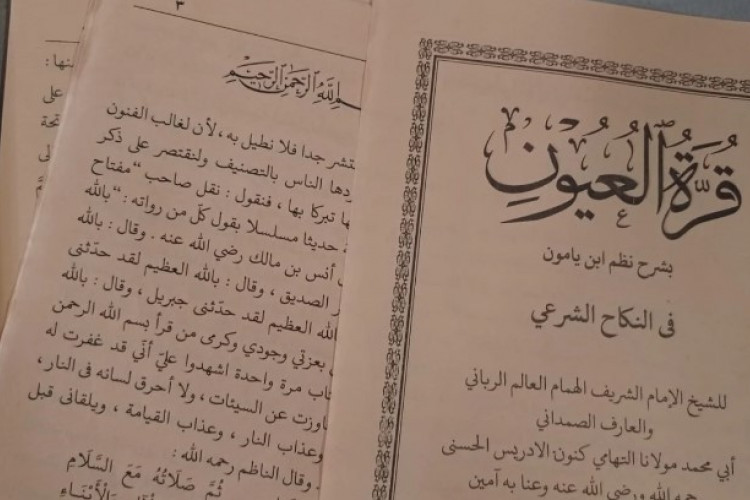 قُرَّةُ الْعُيُونِ
بشرح نظم ابن يامون
فى النكاح الشرعي
للشيخ الإمام الشريف الهمام العالم الرباني
والعارف الصمداني
أبي محمد مولانا التهامي كنون الادريس الحسنى
الله ورضي الله عنه وعنا به آمين
٣
الله الرحمن الرحيم
جدا فلا نطيل به ، لأن لغالب الفنون
الناس بالتصنيف ولنقتصر على ذكر
تبركا بها ، فنقول : نقل صاحب “مفتاح
حديثا مسلسلا بقول كلّ من رواته : “بالله
أنس بن مالك رضي الله عنه . وقال : بالله
الصديق ، وقال : بالله العظيم لقد حدّثنى
الله العظيم لقد حدّثنى جبريل ، وقال : بالله
بعزتي وجودي وكرى من قرأ بسم الله الرحمن
مرة واحدة اشهدوا عليّ أنّي قد غفرت له
عن السيئات ، ولا أحرق لسانه فى النار ،
وعذاب النار ، وعذاب القيامة ، ويلقانى قبل
وقال الناظم رحمه الله :
ثُمَّ صَلَاتُهُ مَعَ السَّلَامِ
على